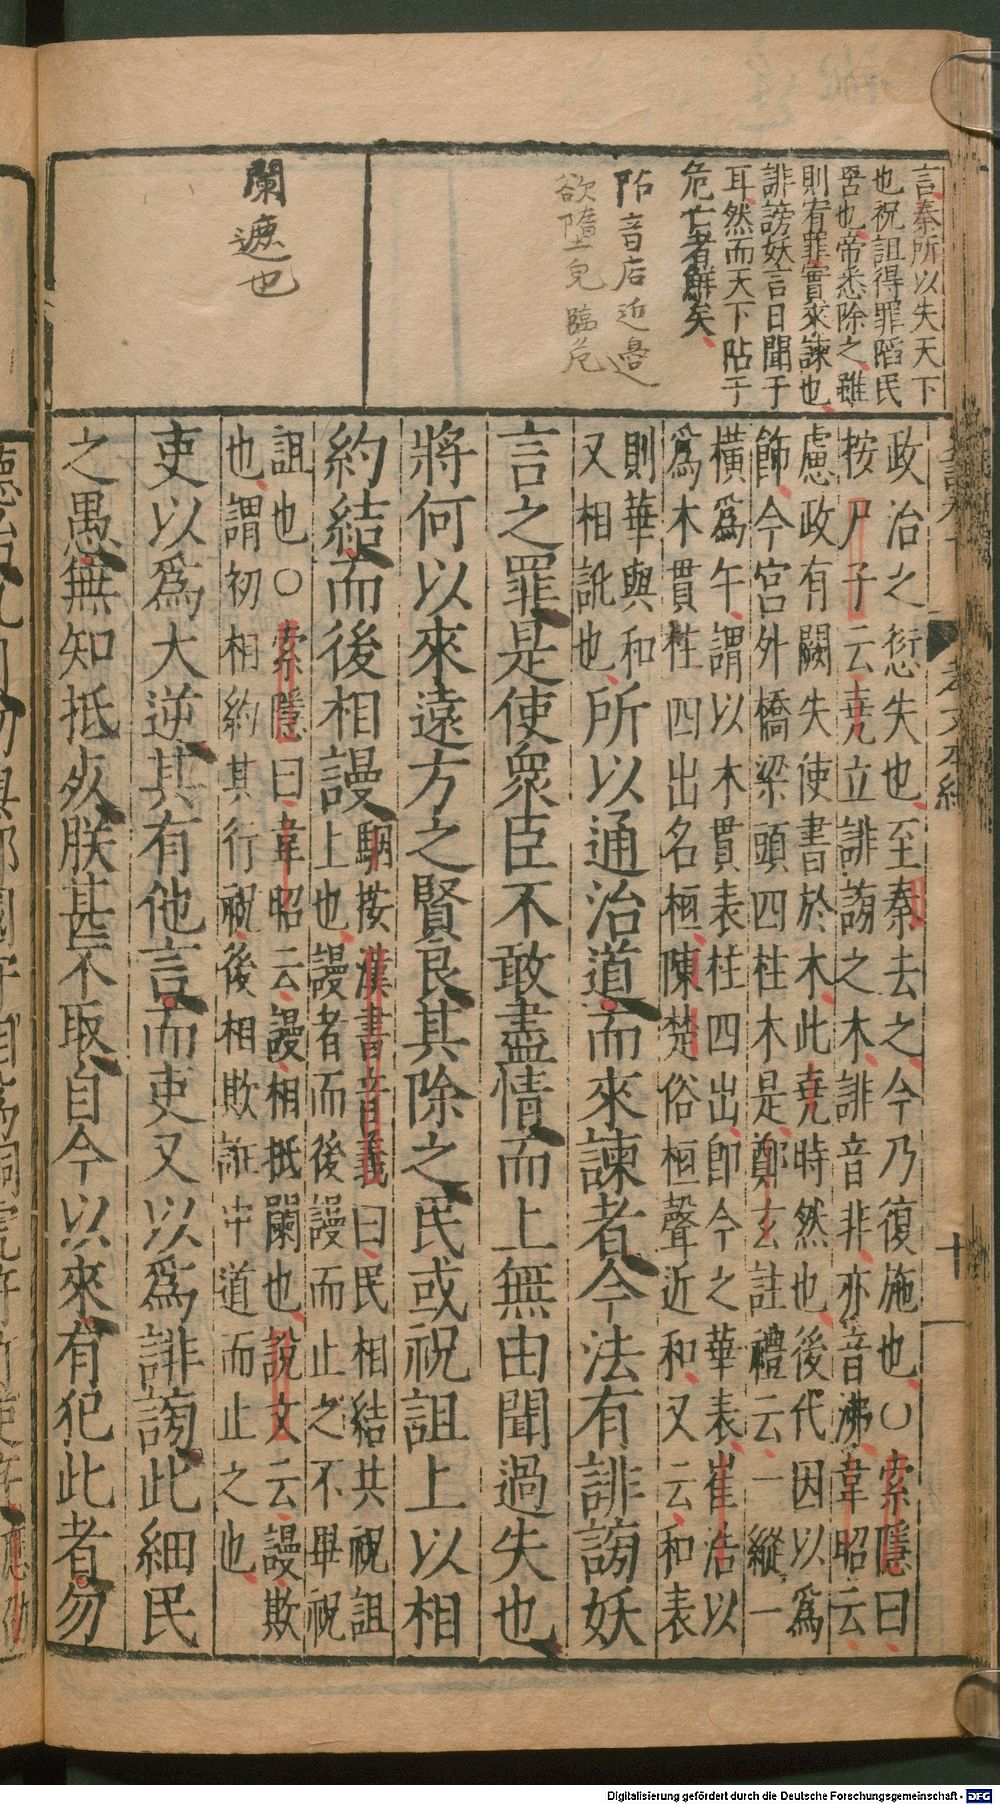 言秦所以失天下
也祝詛得罪蹈民
罟也帝悉除之雖
則宥罪實來諫也
誹謗妖言日聞于
耳然而天下阽于
危亡者鮮矣
阽音店近邊
欲墮皃臨危
闌遮也
孝文本紀
十
政治之愆失也至秦去之今乃復施也○索隱曰
按尸子云堯立誹謗之木誹音非亦音沸韋昭云
慮政有闕失使書於木此堯時然也後代因以爲
飾今宮外橋梁頭四柱木是鄭玄註禮云一縱一
橫爲午謂以木貫表柱四出卽今之華表崔浩以
爲木貫柱四出名桓陳楚俗桓聲近和又云和表
則華與和
又相訛也所以通治道而來諫者今法有誹謗妖
言之罪是使衆臣不敢盡情而上無由聞過失也
將何以來遠方之賢良其除之民或祝詛上以相
約結而後相謾駰按漢書音義曰民相結共祝詛
上也謾者而後謾而止之不畢祝
詛也○索隱曰韋昭云謾相抵闌也說文云謾欺
也謂初相約其行祝後相欺誑中道而止之也
吏以爲大逆其有他言而吏又以爲誹謗此細民
之愚無知抵死朕甚不取自今以來有犯此者勿
Digitalisierung gefördert durch die Deutsche Forschungsgemeinschaft - DFG